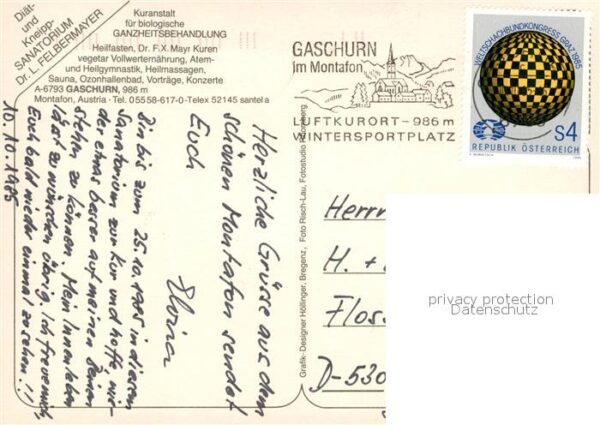 Diät-
und
Kneipp-
SANATORIUM
Dr. L. FELBERMAYER
Kuranstalt
für biologische
GANZHEITSBEHANDLUNG
Heilfasten, Dr. F.X. Mayr Kuren
vegetar Vollwerternährung, Atem-
und Heilgymnastik, Heilmassagen,
Sauna, Ozonhallenbad, Vorträge, Konzerte
A-6793 GASCHURN, 986 m
Montafon, Austria · Tel. 05558-617-0-Telex 52145 santel a
GASCHURN
im Montafon
LUFTKURORT - 986 m
WINTERSPORTPLATZ
WELTSCHACHBUNDKONGRESS GRAZ 1985
S4
REPUBLIK ÖSTERREICH
Herzliche Grüsse aus dem
schönen Montafon sendet
Euch
Bin bis zum 25.10.1985 in diesem
Sanatorium zur Kur und hoffe, wie-
der etwas besser auf meinen Beinen
stehn zu können. Mein Innenleben
lässt zu wünschen übrig. Ich freue mich,
Euch bald wieder einmal zu sehen!!
10.10.1985
Grafik-Designer Höllinger, Bregenz, Foto Risch-Lau, Fotostudio
Herrn
H. +
Floss
D-530
privacy protection
Datenschutz